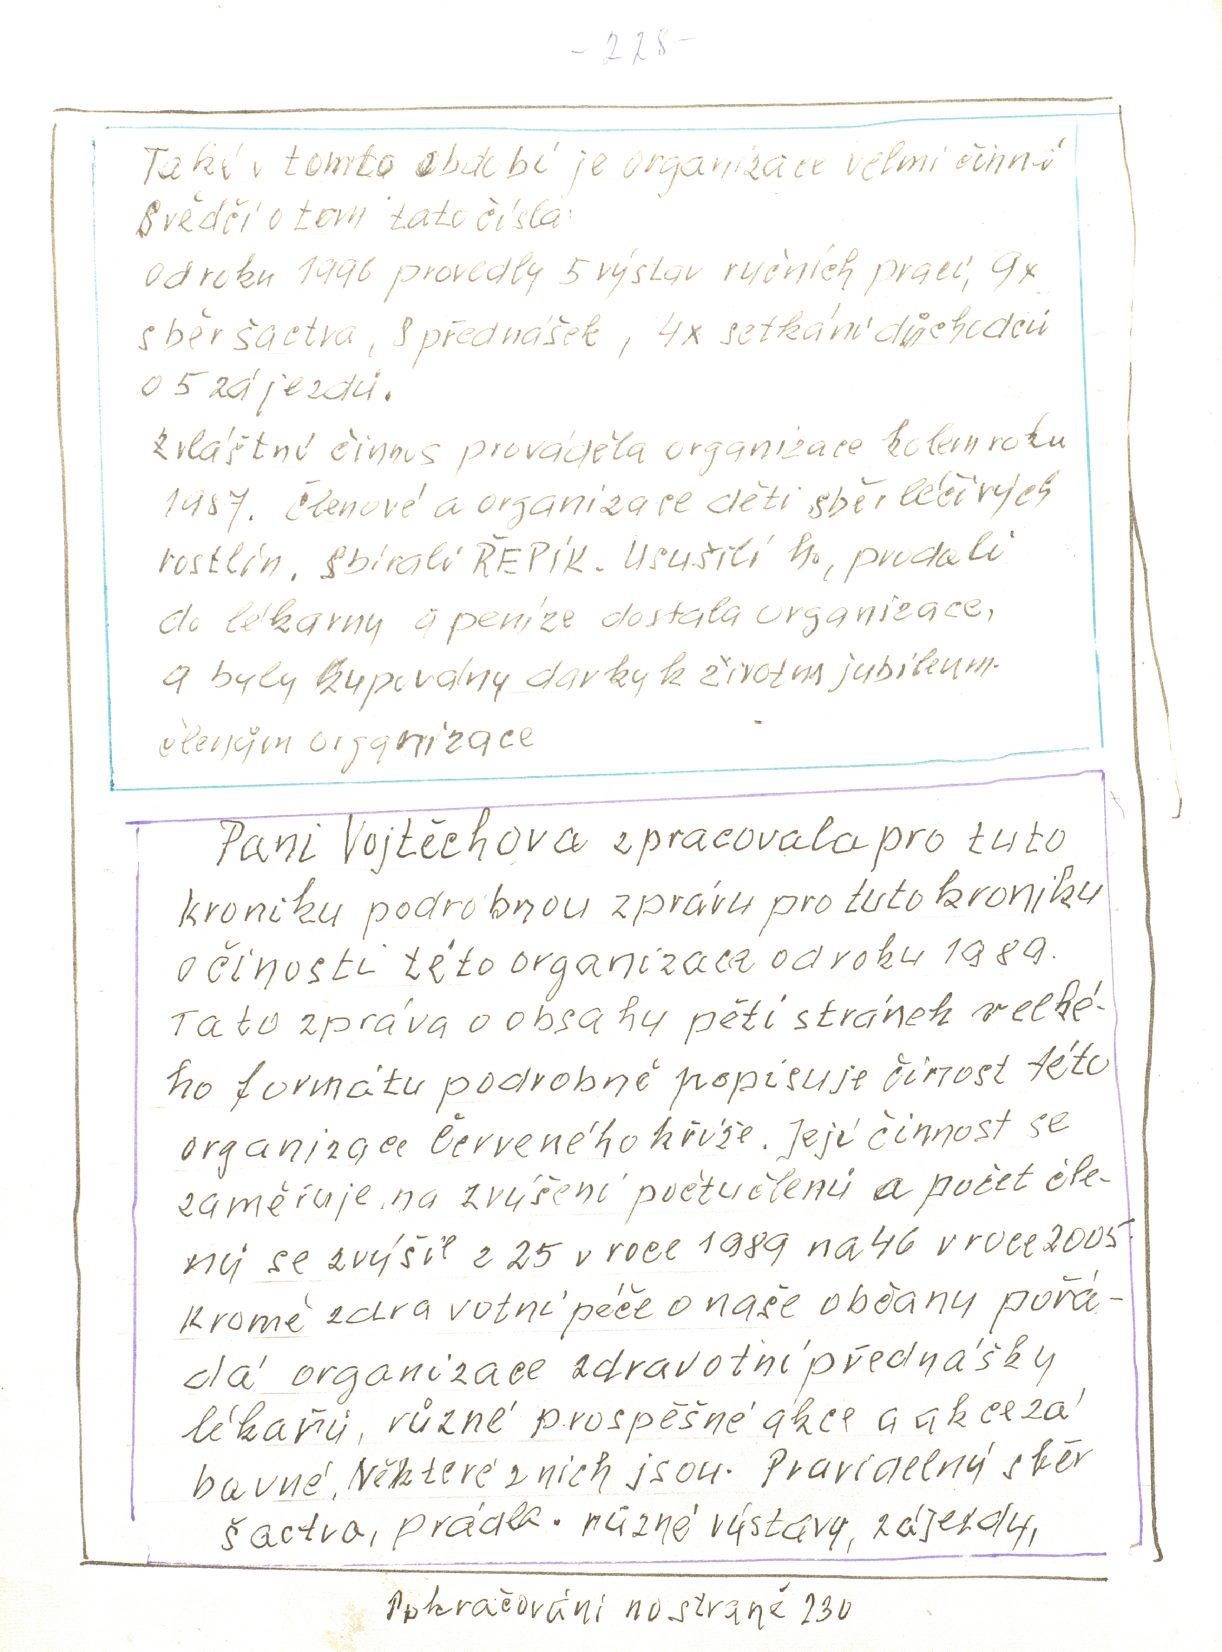 - 228 -
Také v tomto období je organizace velmi činná
Svědčí o tom tato čísla:
od roku 1996 provedly 5 výstav ručních prací, 9x
sběr šactva, 8 přednášek, 4x setkání důchodců
o 5 zájezdů.
zvláštní činnos prováděla organizace kolem roku
1987. Členové a organizace děti sběr léčivých
rostlin. Sbírali ŘEPÍK. Usušili ho, prodali
do lékarny a peníze dostala organizace,
a byly kupovány darky k životnm jubileum.
členům organizace
Pani Vojtěchova zpracovala pro tuto
kroniku podrobnou zprávu pro tuto kroniku
o činosti této organizace od roku 1989.
Tato zpráva o obsahu pěti stránek velké-
ho formátu podrobně popisuje činost této
organizace Červeného kříže. Její činnost se
zaměřuje na zvýšení počtu členů a počet čle-
nů se zvýšil z 25 v roce 1989 na 46 v roce 2005.
Kromě zdravotní péče o naše občany pořá-
dá organizace zdravotní přednášky
lékařů, různé prospěšné akce a akce zá
bavné. Některé z nich jsou. Pravidelný sběr
šactva, prádla. různé výstavy, zájezdy,
Pokračováni na straně 230